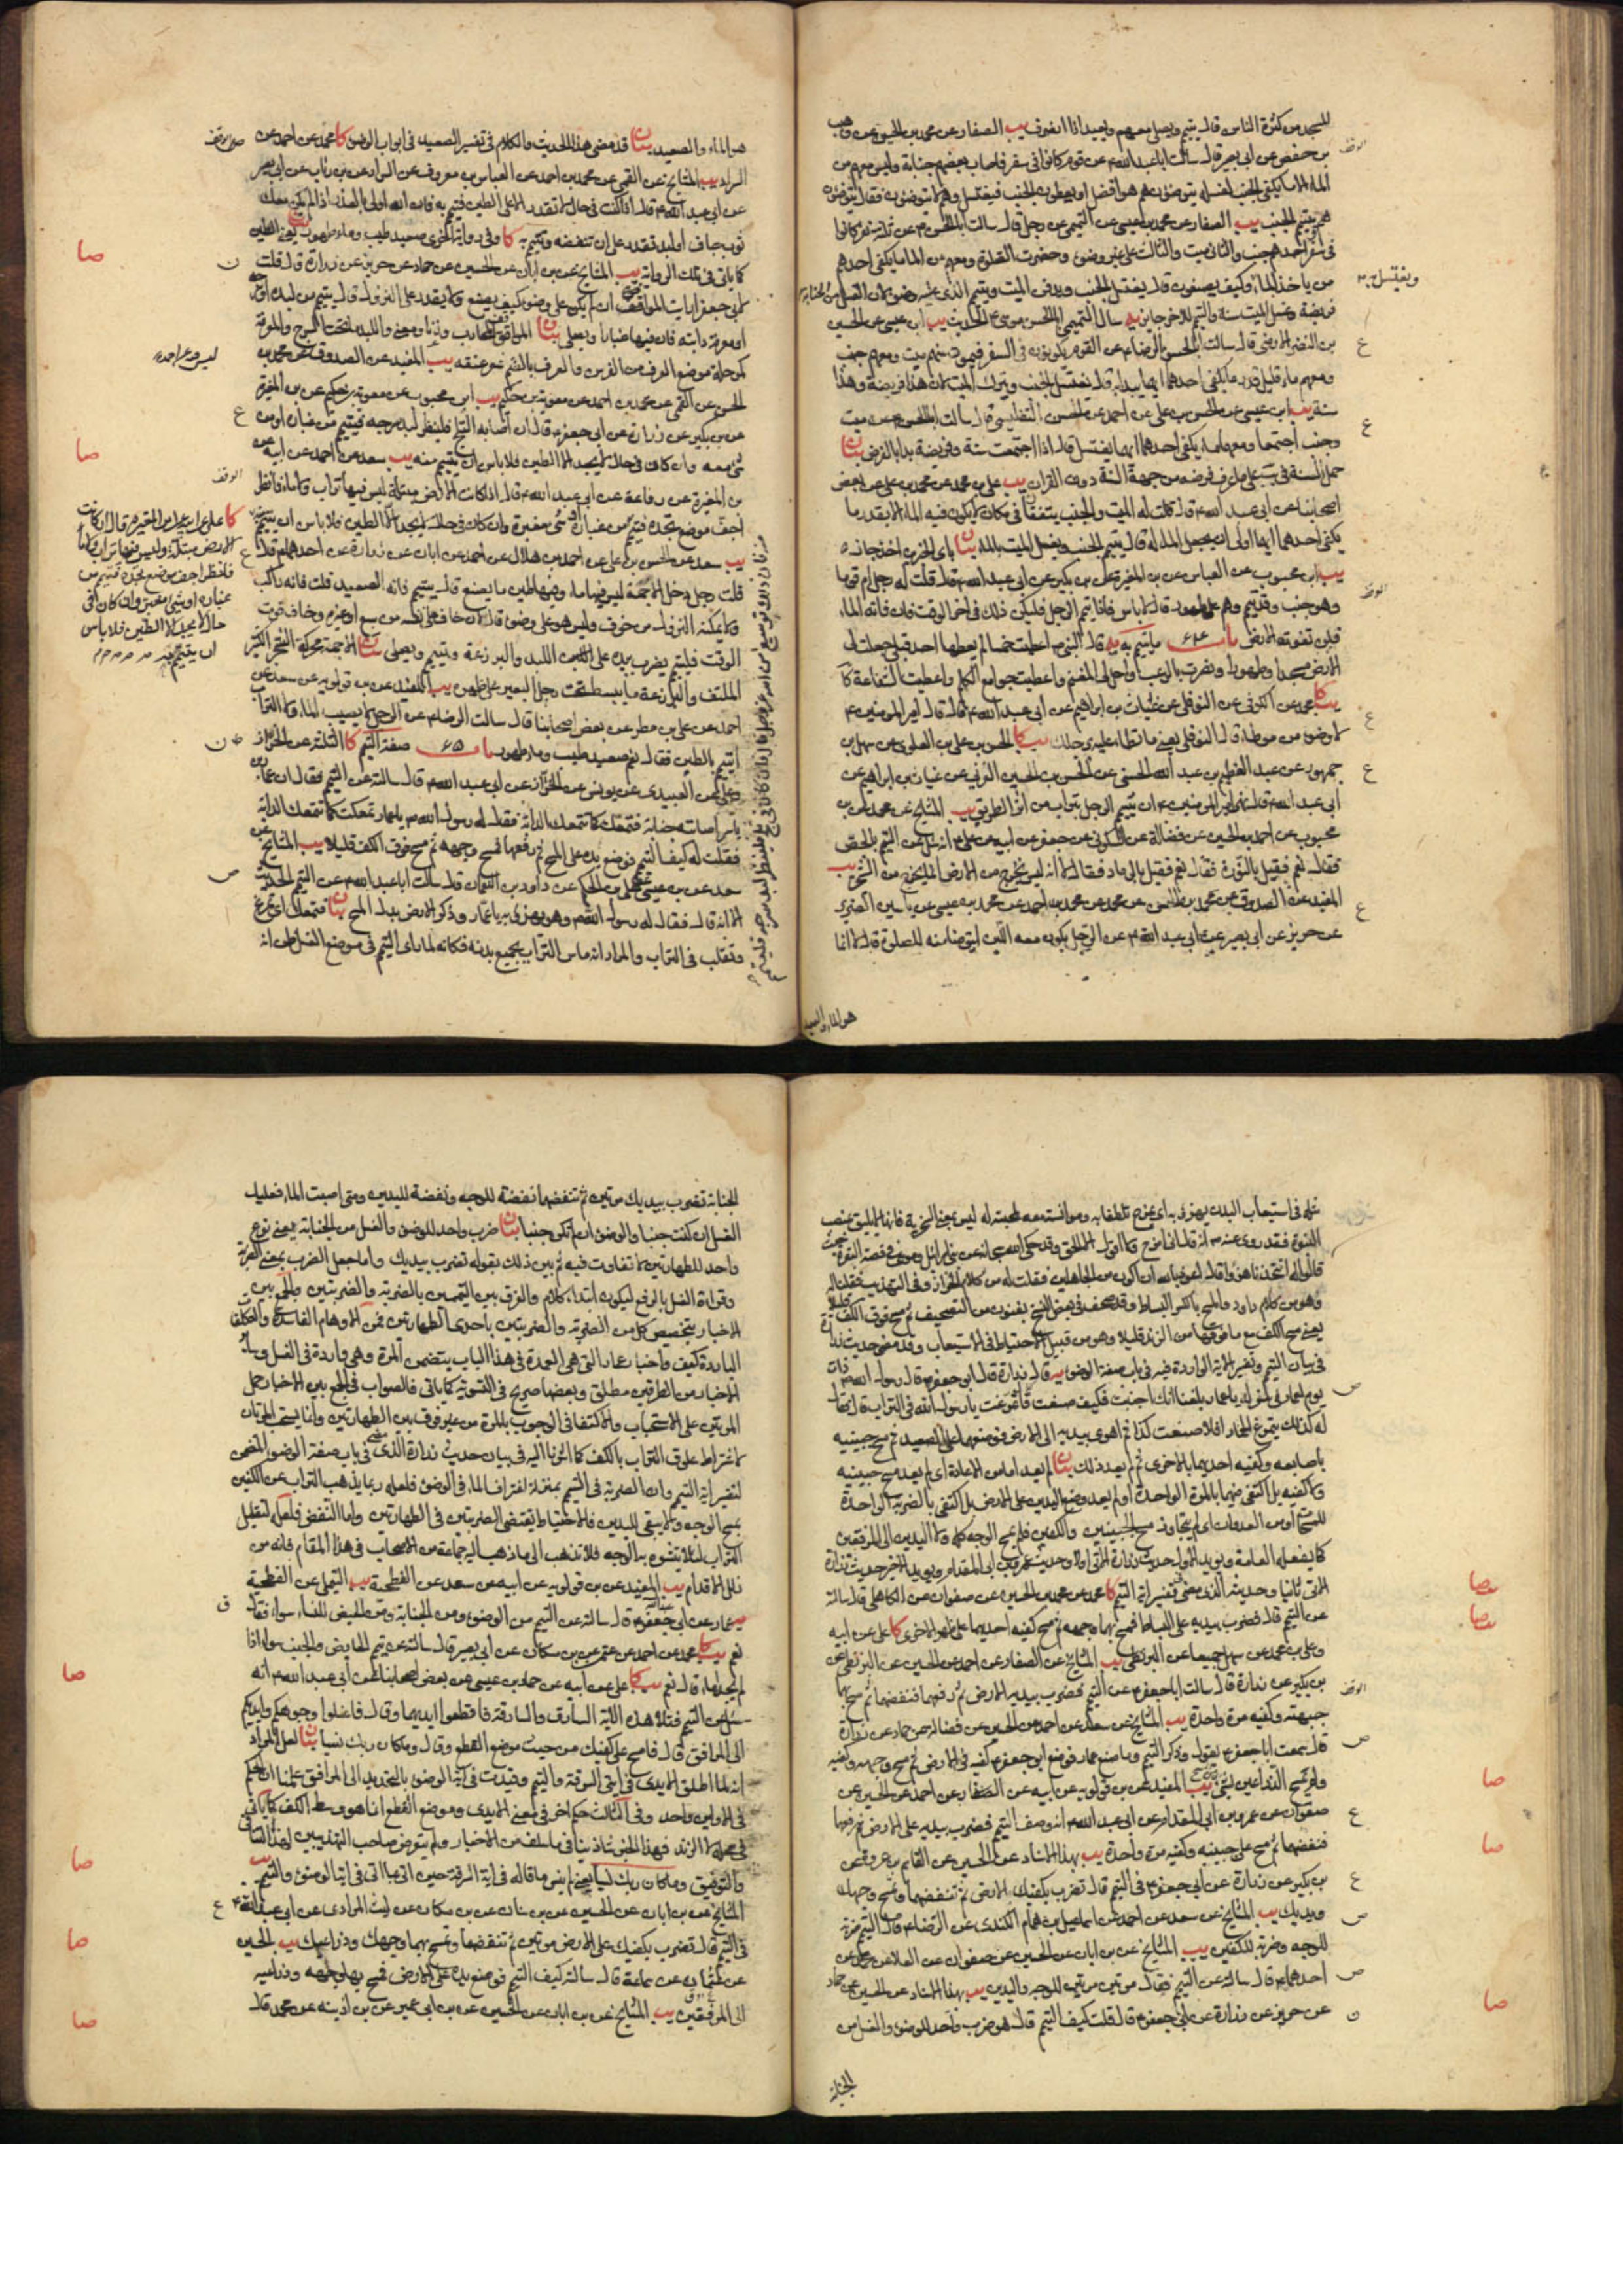 للمسجد من كثرة الناس قال يتيمم ويصلى معهم ويعيد اذا انصرف يب الصفار عن محمد بن الحسين عن وهيب
بن حفص عن ابى بصير قال سالت ابا عبد الله ع عن قوم كانوا فى سفر فاصاب بعضهم جنابة وليس معهم من
الماء الا ما يكفى الجنب لغسله يتوضؤن هم هو افضل او يعطون الجنب فيغتسل وهم لا يتوضؤن فقال يتوضؤن
هم ويتيمم الجنب يب الصفار عن محمد بن عيسى عن التميمى عن رجل قال سالت ابا الحسن ع عن ثلثة نفر كانوا
فى سفر احدهم جنب والثانى ميت والثالث على غير وضوء وحضرت الصلوة ومعهم من الماء ما يكفى احدهم
من ياخذ الماء وكيف يصنعون قال يغتسل الجنب ويدفن الميت ويتيمم الذى عليه وضوء لان الغسل من الجنابة
فريضة وغسل الميت سنة والتيمم للاخر جايز يه سال التميمى ابا الحسن موسى ع الحديث يب ابن عيسى عن الحسين
بن النضر الارمنى قال سالت ابا الحسن الرضا ع عن القوم يكونون فى السفر فيموت منهم ميت ومعهم جنب
ومعهم ماء قليل قدر ما يكفى احدهما ايهما يبدا به قال يغتسل الجنب ويترك الميت لان هذا فريضة وهذا
سنة يب ابن عيسى عن الحسن بن على عن احمد عن الحسن التفليسى قال سالت ابا الحسن ع عن ميت
وجنب اجتمعا ومعهما ما يكفى احدهما ايهما يغتسل قال اذا اجتمعت سنة وفريضة بدا بالفرض بيان
حمل السنة فى على ما عرف فرضه من جهة السنة دون القران يب على بن محمد عن محمد بن على عن بعض
اصحابنا عن ابى عبد الله ع قال قلت له الميت والجنب يتفقان فى مكان لا يكون فيه الماء الا بقدر ما
يكفى احدهما ايهما اولى ان يجعل الماء له قال يتيمم الجنب ويغسل الميت بالماء بيان
يب ابن محبوب عن العباس عن بن المغيرة عن بن بكير عن ابى عبد الله ع قال قلت له رجل ام قوما
وهو جنب وقد تيمم وهم على طهور قال لا باس فاذا تيمم الرجل فليكن ذلك فى اخر الوقت فان فاته الماء
فلن تفوته الارض باب ٦٤ ما يتيمم به يه قال النبى ص اعطيت خمسا لم يعطها احد قبلى جعلت لى
الارض مسجدا وطهورا ونصرت بالرعب واحل لى المغنم واعطيت جوامع الكلم واعطيت الشفاعة كا
يب محمد عن الكوفى عن النوفلى عن غياث بن ابراهيم عن ابى عبد الله ع قال قال امير المؤمنين ع
لا وضوء من موطا قال النوفلى يعنى ما تطا عليه برجلك يب كا الحسن بن على بن العلوى عن سهل بن
جمهور عن عبد العظيم بن عبد الله الحسنى عن الحسن بن الحسين العرنى عن غياث بن ابراهيم عن
ابى عبد الله ع قال نهى امير المؤمنين ع ان يتيمم الرجل بتراب من اثر الطريق يب المشايخ عن محمد عن بن
محبوب عن احمد بن الحسين عن فضالة عن السكونى عن جعفر عن ابيه عن على ع انه سئل عن التيمم بالجص
فقال نعم فقيل بالنورة فقال نعم فقيل بالرماد فقال لا انه ليس يخرج من الارض انما يخرج من الشجر يب
المفيد عن الصدوق عن محمد بن الحسن عن محمد عن محمد بن احمد عن محمد بن عيسى عن ياسين الضرير
عن حريز عن ابى بصير عن ابى عبد الله ع عن الرجل يكون معه اللبن ايتوضا منه للصلوة قال لا انما
هو الماء والصعيد
ويغتسل
هو الماء والصعيد بيان قد مضى هذا الحديث والكلام فى تفسير الصعيد فى ابواب الوضوء كا محمد عن احمد عن
السراد يب المشايخ عن القمى عن محمد بن احمد عن العباس بن معروف عن السراد عن بن رئاب عن ابى بصير
عن ابى عبد الله ع قال اذا كنت فى حال لا تقدر الا على الطين فتيمم به فان الله اولى بالعذر اذا لم يكن معك
ثوب جاف او لبد تقدر على ان تنفضه وتتيمم به كا وفى رواية اخرى صعيد طيب وماء طهور بيان يعنى الطين
كما ياتى فى تلك الرواية يب المشايخ عن بن ابان عن الحسين عن حماد عن حريز عن زرارة قال قلت
لابى جعفر ع ارايت المواقف ان لم يكن على وضوء كيف يصنع ولا يقدر على النزول قال يتيمم من لبده او سرجه
او معرفة دابته فان فيها غبارا ويصلى بيان المواقف المحارب وزنا ومعنى واللبد ما تحت السرج والمعرفة
كمرحلة موضع العرف من الفرس والعرف بالضم شعر عنقه يب المفيد عن الصدوق عن محمد بن
الحسن عن القمى عن محمد بن احمد عن معوية بن حكيم يب ابن محبوب عن معوية بن حكيم عن بن المغيرة
عن بن بكير عن زرارة عن ابى جعفر ع قال ان اصابه الثلج فلينظر لبد سرجه فيتيمم من غباره او من
شئ معه وان كان فى حال لا يجد الا الطين فلا باس ان يتيمم منه يب سعد عن احمد عن ابيه عن
بن المغيرة عن رفاعة عن ابى عبد الله ع قال اذا كانت الارض مبتلة ليس فيها تراب ولا ماء فانظر
اجف موضع تجده فتيمم من غباره او شئ مغبر وان كان فى حال لا يجد الا الطين فلا باس ان يتيمم
يب سعد عن الحسن بن على عن احمد بن هلال عن احمد عن ابان عن زرارة عن احدهما ع قال
قلت رجل دخل الاجمة ليس فيها ماء وفيها طين ما يصنع قال يتيمم فانه الصعيد قلت فانه راكب
ولا يمكنه النزول من خوف وليس هو على وضوء قال ان خاف على نفسه من سبع او غيره وخاف فوت
الوقت فليتيمم يضرب بيده على اللبد والبرذعة ويتيمم ويصلى بيان الاجمة محركة الشجر الكثير
الملتف والبرذعة ما يبسط تحت رحل البعير على ظهره يب المفيد عن بن قولويه عن سعد عن
احمد عن على بن مطر عن بعض اصحابنا قال سالت الرضا ع عن الرجل لا يصيب الماء ولا التراب
ايتيمم بالطين فقال نعم صعيد طيب وماء طهور باب ٦٥ صفة التيمم كا الثلثة عن الخزاز
على عن العبيدى عن يونس عن الخزاز عن ابى عبد الله ع قال سالته عن التيمم فقال ان عمار بن
ياسر اصابته جنابة فتمعك كما تتمعك الدابة فقال له رسول الله ص يا عمار تمعكت كما تتمعك الدابة
فقلت له كيف التيمم فوضع يده على المسح ثم رفعها فمسح وجهه ثم مسح فوق الكف قليلا يب المشايخ عن
سعد عن بن عيسى عن على بن الحكم عن داود بن النعمان قال سالت ابا عبد الله ع عن التيمم الحديث
الا انه قال فقال له رسول الله ص وهو يهزئ به يا عمار وذكر الارض بدل المسح بيان فتمعك اى تمرغ
وتقلب فى التراب والمراد انه ماس التراب بجميع بدنه فكانه لما راى التيمم فى موضع الغسل ظن انه
كا على عن ابيه عن بن المغيرة قال ان كانت
الارض مبتلة وليس فيها تراب ولا ماء
فانظر اجف موضع تجده فتيمم من
غباره او شئ مغبر وان كان فى
حال لا يجد الا الطين فلا باس
ان يتيمم منه
مثله فى استيعاب البدن يهزئ به اى يمزح تلطفا به وموانسة معه لمحبته له ليس بمعنى السخرية فانها لا يليق بمنصب
النبوة فقد روى عنه ص انه قال انى امزح ولا اقول الا الحق وقد حكى الله سبحانه عن بنى اسرائيل وموسى فى قصة البقرة حيث
قالوا له اتتخذنا هزوا قال اعوذ بالله ان اكون من الجاهلين فقلت له من كلام الخزاز وفى التهذيب فقلنا له
وهو من كلام داود والمسح بالكسر البساط وقد صحف فى بعض النسخ بفنون من التصحيف ثم مسح فوق الكف قليلا
يعنى مسح الكف مع ما فوقها من الزند قليلا وهو من قبيل الاحتياط فى الاستيعاب وقد مضى حديث زرارة
فى بيان التيمم وتفسير الاية الواردة فيه فى باب صفة الوضوء يه قال زرارة قال ابو جعفر ع قال رسول الله ص ذات
يوم لعمار فى سفر له يا عمار بلغنا انك اجنبت فكيف صنعت قال تمرغت يا رسول الله فى التراب قال فقال
له كذلك يتمرغ الحمار افلا صنعت كذا ثم اهوى بيديه الى الارض فوضعهما على الصعيد ثم مسح جبينيه
باصابعه وكفيه احديهما بالاخرى ثم لم يعد ذلك بيان لم يعد اما من الاعادة اى لم يعد مسح جبينيه
ولا كفيه بل اكتفى فيهما بالمرة الواحدة او لم يعد وضع اليدين على الارض بل اكتفى بالضربة الواحدة
للمسح او من العدوان اى لم يتجاوز مسح الجبينين والكفين فلم يمسح الوجه كله ولا اليدين الى المرفقين
كما يفعله العامة ويويد الاول حديث زرارة الاتى اولا وحديث عمرو بن ابى المقدام ويويد الاخر حديث زرارة
الاتى ثانيا وحديثه الذى مضى فى تفسير اية التيمم كا محمد عن محمد بن الحسين عن صفوان عن الكاهلى قال سالته
عن التيمم قال فضرب بيديه على البساط فمسح بهما وجهه ثم مسح كفيه احديهما على ظهر الاخرى كا على عن ابيه
وعلى بن محمد عن سهل جميعا عن البزنطى يب المشايخ عن الصفار عن احمد عن الحسين عن البزنطى عن
بن بكير عن زرارة قال سالت ابا جعفر ع عن التيمم فضرب بيديه الارض ثم رفعهما فنفضهما ثم مسح بهما
جبهته وكفيه مرة واحدة يب المشايخ عن سعد عن احمد عن الحسين عن فضالة عن حماد عن زرارة
قال سمعت ابا جعفر ع يقول وذكر التيمم وما صنع عمار فوضع ابو جعفر ع كفيه فى الارض ثم مسح وجهه وكفيه
ولم يمسح الذراعين بشئ يب المفيد عن بن قولويه عن ابيه عن الصفار عن احمد عن الحسين عن
صفوان عن عمرو بن ابى المقدام عن ابى عبد الله ع انه وصف التيمم فضرب بيديه على الارض ثم رفعهما
فنفضهما ثم مسح على جبينيه وكفيه مرة واحدة يب بهذا الاسناد عن الحسين عن القاسم بن عروة عن
بن بكير عن زرارة عن ابى جعفر ع فى التيمم قال تضرب بكفيك الارض ثم تنفضهما وتمسح وجهك
ويديك يب المشايخ عن سعد عن احمد عن اسمعيل بن همام الكندى عن الرضا ع قال التيمم ضربة
للوجه وضربة للكفين يب المشايخ عن بن ابان عن الحسين عن صفوان عن العلا عن محمد عن
احدهما ع قال سالته عن التيمم فقال مرتين مرتين للوجه واليدين يب بهذا الاسناد عن الحسين عن حماد
عن حريز عن زرارة عن ابى جعفر ع قال قلت كيف التيمم قال هو ضرب واحد للوضوء والغسل من
الجنابة
الجنابة تضرب بيديك مرتين ثم تنفضهما نفضة للوجه ونفضة لليدين ومتى اصبت الماء فعليك
الغسل ان كنت جنبا والوضوء ان لم تكن جنبا بيان ضرب واحد للوضوء والغسل من الجنابة يعنى نوع
واحد للطهارتين لا تفاوت فيه ثم بين ذلك بقوله تضرب بيديك واما جعل الضرب بمعنى الضربة
وقراءة الغسل بالرفع ليكون ابتداء كلام والفرق بين التيممين بالضربة والضربتين والجمع بين
الاخبار بتخصيص كل من الضربة والضربتين باحدى الطهارتين فمن الاوهام الفاسدة والتكلفات
الباردة كيف واخبار عمار التى هى العمدة فى هذا الباب يتضمن المرة وهى واردة فى الغسل وساير
الاخبار من الطرفين مطلق وبعضها صريح فى التسوية كما ياتى فالصواب فى الجمع بين الاخبار حمل
المرتين على الاستحباب والاكتفاء فى الوجوب بالمرة من غير فرق بين الطهارتين وانما يستحب المرتان
لاشتراط علوق التراب بالكف كما اشرنا اليه فى بيان حديث زرارة الذى مضى فى باب صفة الوضوء المتضمن
لتفسير اية التيمم وان الضربة فى التيمم بمنزلة اغتراف الماء فى الوضوء فلعله ربما يذهب التراب عن الكفين
بمسح الوجه ولا يبقى لليدين فالاحتياط يقتضى الضربتين فى الطهارتين واما النفض فلعله لتقليل
التراب لئلا يتشوه به الوجه فلا تذهب الى ما ذهب اليه جماعة من الاصحاب فى هذا المقام فانه من
زلل الاقدام يب المفيد عن بن قولويه عن ابيه عن سعد عن الفطحية يب التيملى عن الفطحية
يه عمار عن ابى عبد الله ع قال سالته عن التيمم من الوضوء ومن الجنابة ومن الحيض للنساء سواء فقال
نعم يب كا محمد عن احمد عن عثمن عن بن مسكان عن ابى بصير قال سالته عن تيمم الحايض والجنب سواء اذا
لم يجدا ماء قال نعم يب كا على عن ابيه عن حماد بن عيسى عن بعض اصحابنا عن ابى عبد الله ع انه
سئل عن التيمم فتلا هذه الاية السارق والسارقة فاقطعوا ايديهما وقال فاغسلوا وجوهكم وايديكم
الى المرافق قال فامسح على كفيك من حيث موضع القطع وقال وما كان ربك نسيا بيان لعل المراد
انه لما اطلق الايدى فى ايتى السرقة والتيمم وقيدت فى اية الوضوء بالتحديد الى المرافق علمنا ان الحكم
فى الاولين واحد وفى الثالث حكم اخر فى معنى الايدى وموضع القطع انما هو وسط الكف كما ياتى
فى محله لا الزند فهذا الخبر شاذ ينافى ما سلف من الاخبار ولم يتعرض صاحب التهذيبين لهذا التنافى
والتوفيق وما كان ربك نسيا يعنى لم ينس ما قاله فى اية السرقة حين اتى بما اتى فى ايتى الوضوء والتيمم يب
المشايخ عن بن ابان عن الحسين عن بن سنان عن بن مسكان عن ليث المرادى عن ابى عبد الله ع
فى التيمم قال تضرب بكفيك على الارض مرتين ثم تنفضهما وتمسح بهما وجهك وذراعيك يب الحسين
عن عثمان عن سماعة قال سالته كيف التيمم فوضع يده على الارض فمسح بها وجهه وذراعيه
الى المرفقين يب المشايخ عن بن ابان عن الحسين عن بن ابى عمير عن بن اذينة عن محمد قال